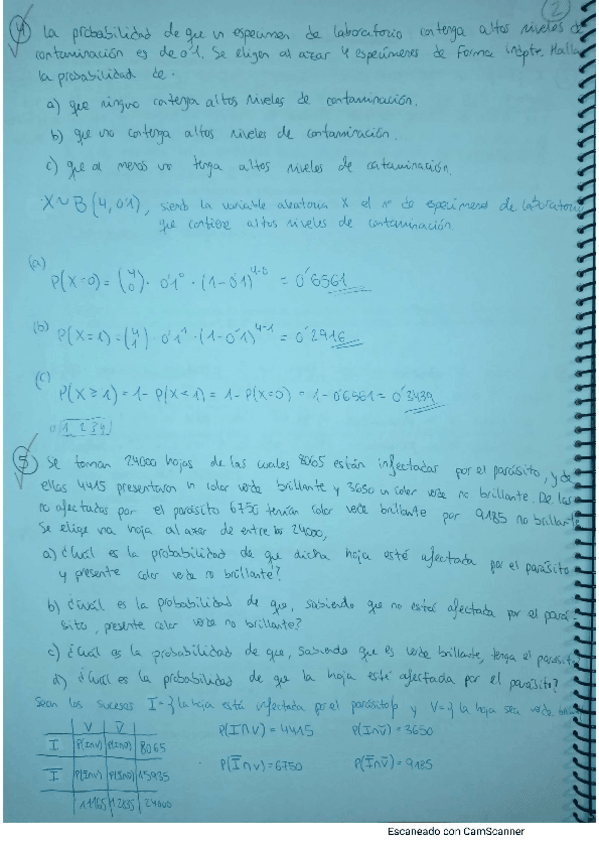 2
4 La probabilidad de que un especimen de laboratorio contenga altos niveles de
contaminación es de 0'1. Se eligen al azar 4 especímenes de forma indptr. Halla
la probabilidad de.
a) que ninguno contenga altos niveles de contaminación.
b) que uno contenga altos niveles de contaminación.
c) que al menos uno tenga altos niveles de contaminación.
X~B(4, 0'1), siendo la variable aleatoria X el nº de especímenes de laboratorio
que contiene altos niveles de contaminación.
(a)
P(X=0) = (4 0) · 0'1⁰ · (1-0'1)⁴⁻⁰ = 0'6561
(b) P(X=1) = (4 1) · 0'1¹ · (1-0'1)⁴⁻¹ = 0'2916
(c)
P(X≥1) = 1 - P(X<1) = 1 - P(X=0) = 1 - 0'6561 = 0'3439
0 1 2 3 4
5 Se toman 24000 hojas de las cuales 8065 están infectadas por el parásito, y de
ellas 4415 presentaron un color verde brillante y 3650 un color verde no brillante. De las
no afectadas por el parásito 6750 tenían color verde brillante por 9185 no brillante
Se elige una hoja al azar de entre las 24000,
a) ¿Cuál es la probabilidad de que dicha hoja esté afectada por el parásito
y presente color verde no brillante?
b) ¿Cuál es la probabilidad de que, sabiendo que no está afectada por el pará-
sito, presente color verde no brillante?
c) ¿Cuál es la probabilidad de que, sabiendo que es verde brillante, tenga el parásito?
d) ¿Cuál es la probabilidad de que la hoja esté afectada por el parásito?
Sean los sucesos I={la hoja está infectada por el parásito} y V={la hoja sea verde
V V̄ P(I∩V)=4415 P(I∩V̄)=3650
I P(I∩V) P(I∩V̄) 8065
Ī P(Ī∩V) P(Ī∩V̄) 15935 P(Ī∩V)=6750 P(Ī∩V̄)=9185
11165 12835 24000
Escaneado con CamScanner